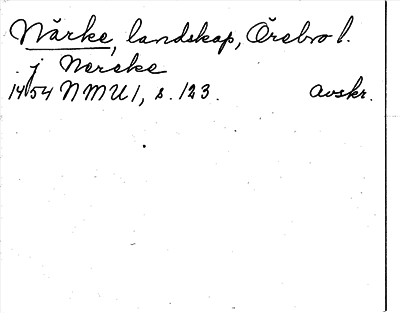 Närke, landskap, Örebro l.
j Nereke
1454 NMU 1, s. 123. Avskr.